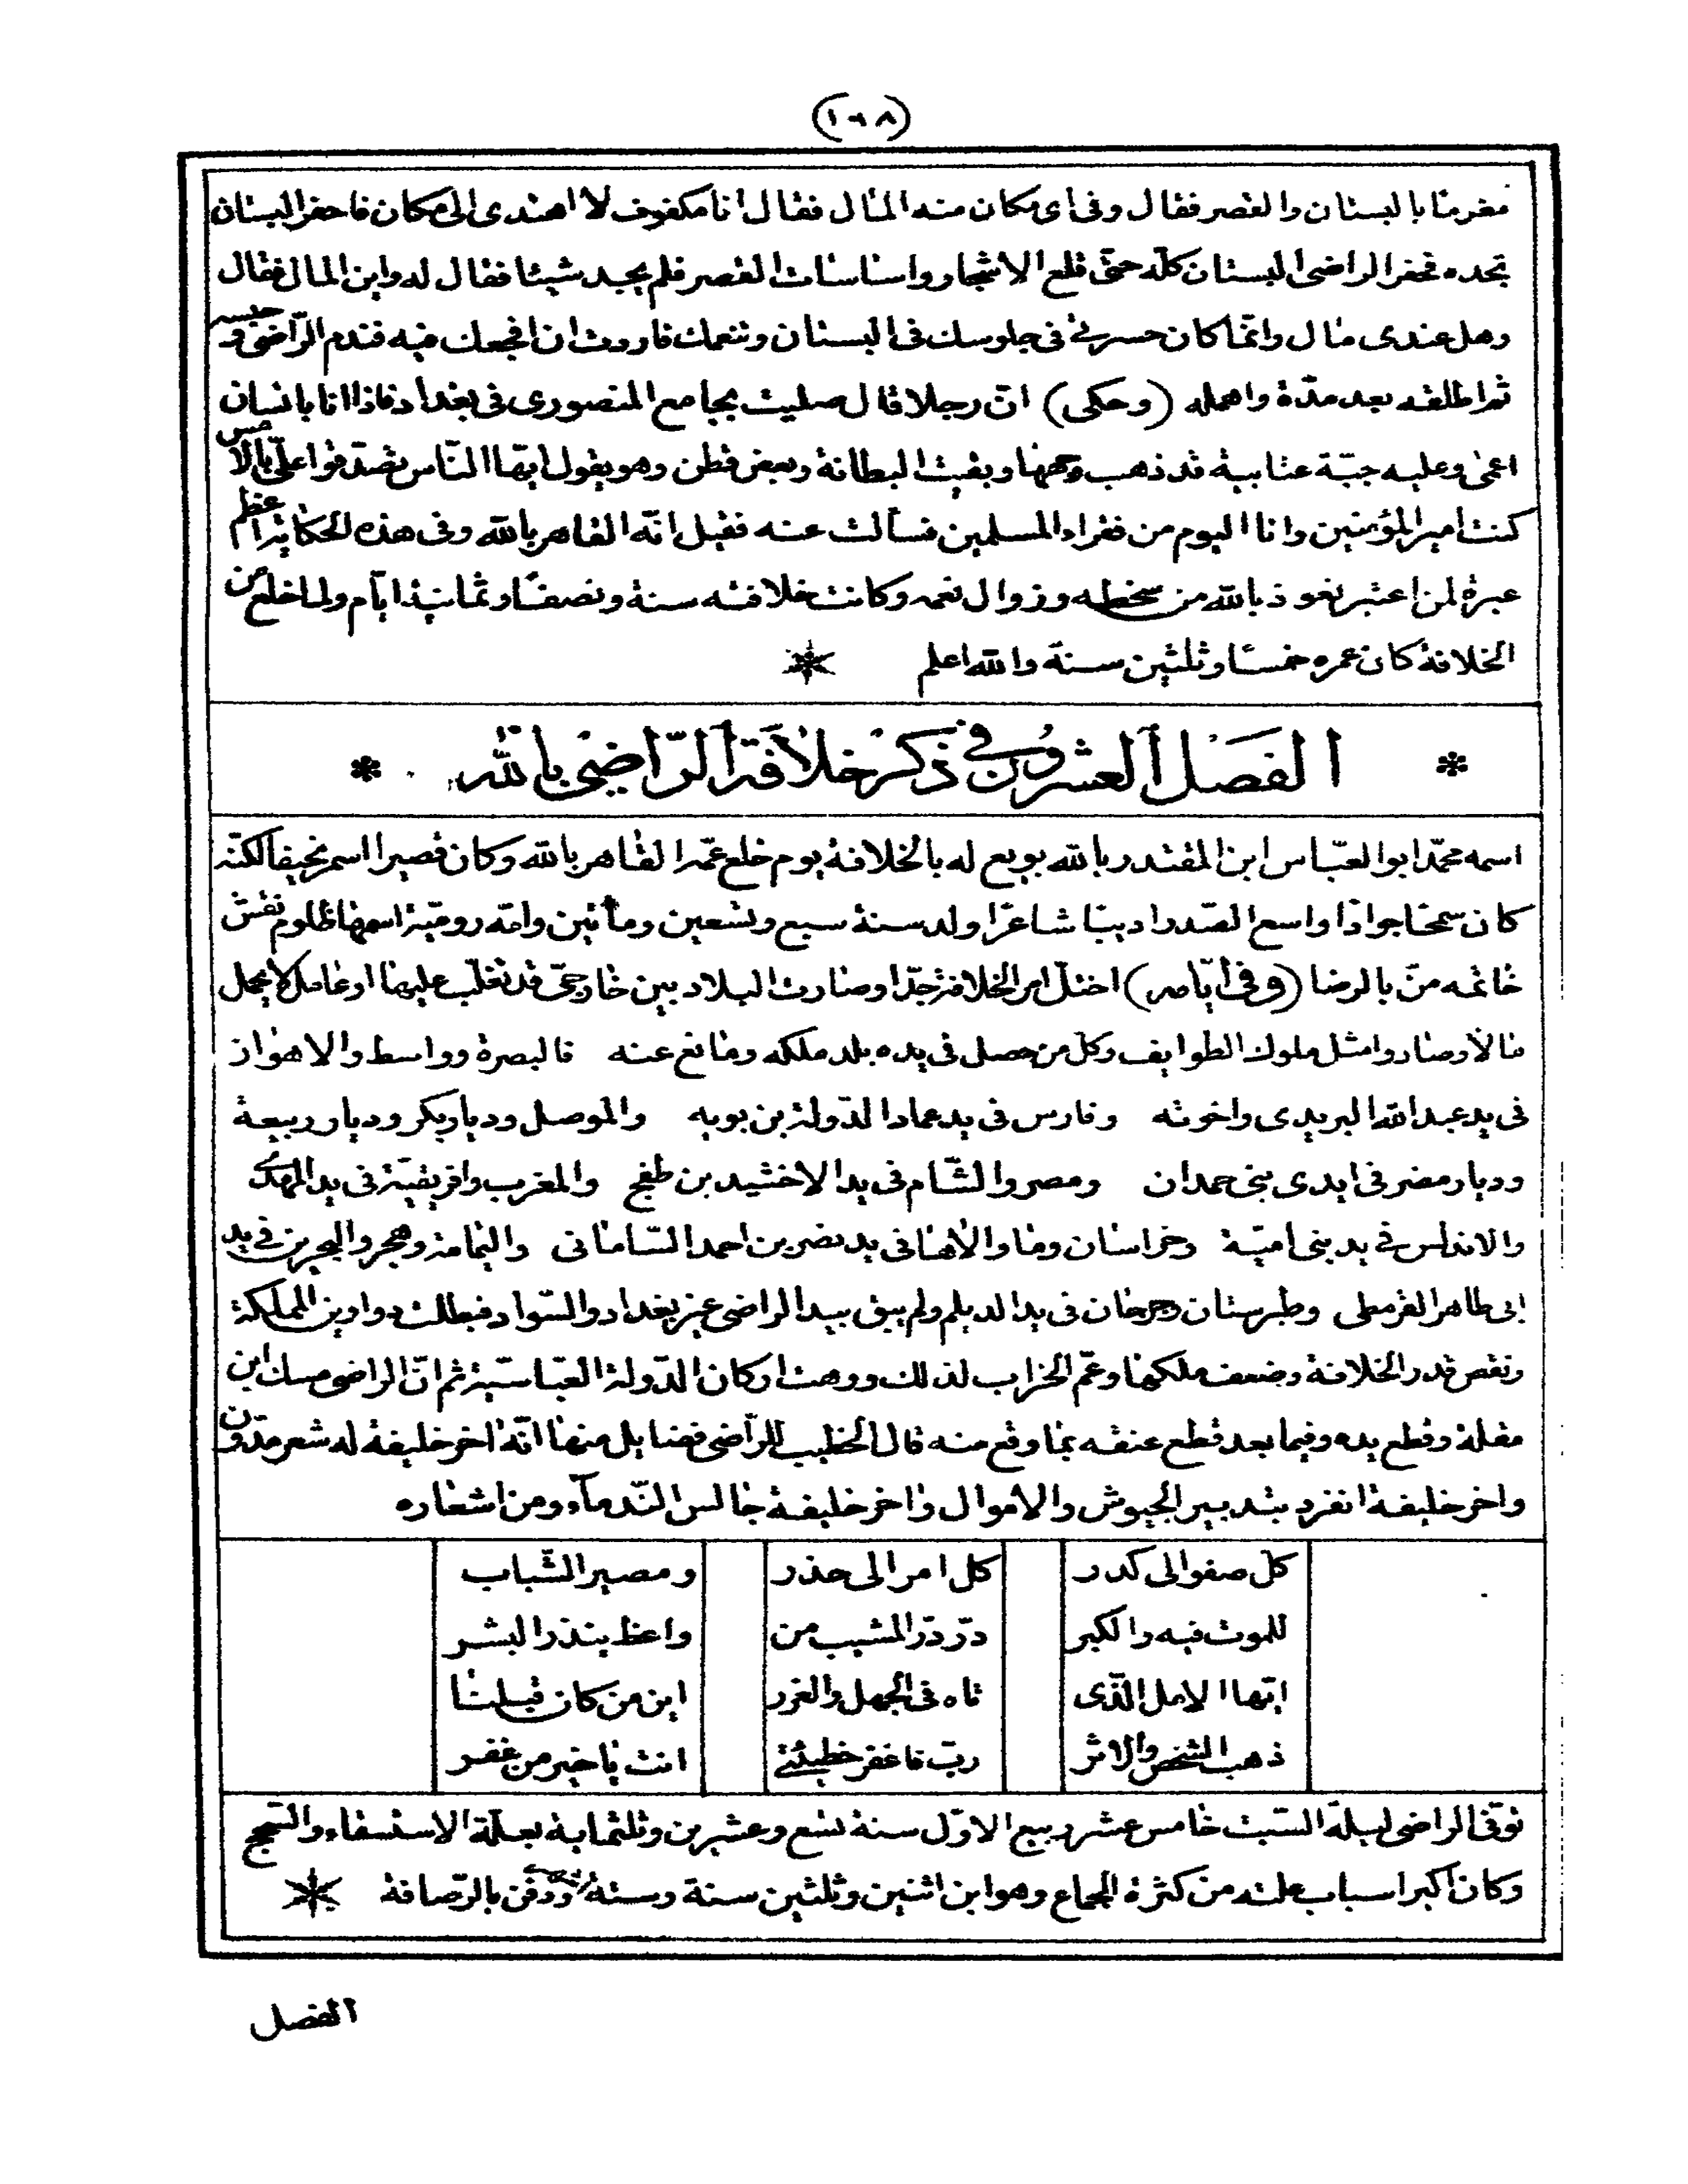 (١٠٨)
مغرمًا بالبستان والقصر فقال وفى اى مكان منه المال فقال انا مكفوف لا اهتدى الى مكان فاحفر البستان
تجده فحفر الراضى البستان كلّه حتّى قلع الاشجار واساسات القصر فلم يجد شيئا فقال له واين المال فقال
وهل عندى مال وانّما كان حسرتى فى جلوسك فى البستان وتنعمك فاردت ان افجعك فيه فندم الرّاضى وحبسه
ثم اطلقه بعد مدّة واهمله (وحكى) انّ رجلا قال صليت بجامع المنصورى فى بغداد فاذا انا بانسان
اعمى وعليه جبّة عتابية قد ذهب وجهها وبقيت البطانة وبعض قطن وهو يقول ايّها النّاس تصدّقوا علىّ بالامس
كنت امير المؤمنين وانا اليوم من فقراء المسلمين فسالت عنه فقيل انّه القاهر بالله وفى هذه الحكاية اعظم
عبرة لمن اعتبر نعوذ بالله من سخطه وزوال نعمه وكانت خلافته سنة ونصفًا وثمانية ايّام ولما خلع من
الخلافة كان عمره خمسًا وثلثين سنة والله اعلم
* الفصل العشرون فى ذكر خلافة الرّاضى بالله *
اسمه محمّد ابو العبّاس ابن المقتدر بالله بويع له بالخلافة يوم خلع عمّه القاهر بالله وكان قصيرا اسمر نحيفا لكنّه
كان سمحًا جوادًا واسع الصّدر اديبًا شاعرًا ولد سنة سبع وتسعين ومأتين وامّه روميّة اسمها ظلوم نقش
خاتمه من بالرضا (وفى ايّامه) اختلّ امر الخلافة جدّا وصارت البلاد بين خارجىّ قد تغلّب عليها او عامل لا يحمل
مالا وصاروا مثل ملوك الطوايف وكلّ من حصل فى يده بلد ملكه ومانع عنه فالبصرة وواسط والاهواز
فى يد عبد الله البريدى واخوته وفارس فى يد عماد الدّولة بن بويه والموصل وديار بكر وديار ربيعة
وديار مضر فى ايدى بنى حمدان ومصر والشّام فى يد الاخشيد بن طغج والمغرب وافريقيّة فى يد المهدى
والاندلس فى يد بنى اميّة وخراسان وما والاها فى يد نصر بن احمد السّامانى واليمامة وهجر والبحرين فى يد
ابى طاهر القرمطى وطبرستان وجرجان فى يد الديلم ولم يبق بيد الراضى غير بغداد والسّواد فبطلت دواوين المملكة
ونقص قدر الخلافة وضعف ملكها وعمّ الخراب لذلك ووهت اركان الدّولة العبّاسيّة ثم انّ الراضى مسك ابن
مقلة وقطع يده وفيما بعد قطع عنقه بما وقع منه قال الخطيب للرّاضى فضايل منها انّه اخر خليفة له شعر مدوّن
واخر خليفة انفرد بتدبير الجيوش والاموال واخر خليفة جالس النّدمآء ومن اشعاره
كلّ صفو الى كدر كل امر الى حذر ومصير الشّباب
للموت فيه والكبر درّ درّ المشيب من واعظ ينذر البشر
ايّها الامل الّذى تاه فى الجهل والغرر اين من كان قبلنا
ذهب الشخص والاثر ربّ فاغفر خطيئتى انت يا خير من غفر
توفّى الراضى ليلة السّبت خامس عشر ربيع الاوّل سنة تسع وعشرين وثلثماية بعلّة الاستسقاء والسّحج
وكان اكبر اسباب علته من كثرة الجماع وهو ابن اثنين وثلثين سنة وستة ودفن بالرّصافة
الفصل